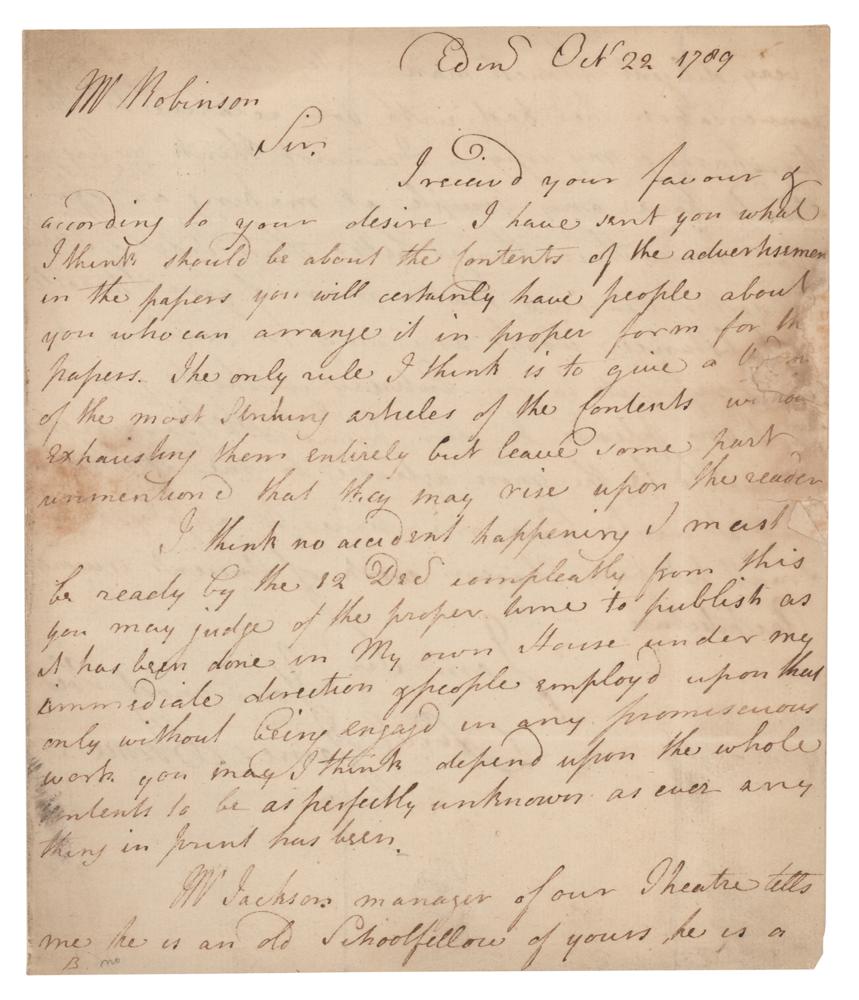 Edinr Oct 22 1789
Mr Robinson
Sir
I receivd your favour &
according to your desire I have sent you what
I think should be about the Contents of the advertisemen
in the papers you will certainly have people about
you who can arrange it in proper form for th
papers. The only rule I think is to give a
of the most Striking articles of the Contents withou
exhausting them entirely but leave some part
unmentiond that they may rise upon the reader
I think no accident happening I must
be ready by the 12 Decr compleatly from this
you may judge of the proper time to publish as
it has been done in My own House under my
immediate direction & people employd upon that
only without being engagd in any promiscuous
work you may I think depend upon the whole
contents to be as perfectly unknown as ever any
thing in print has been.
Mr Jackson manager of our Theatre tells
me he is an old Schoolfellow of yours, he is a
B. mo